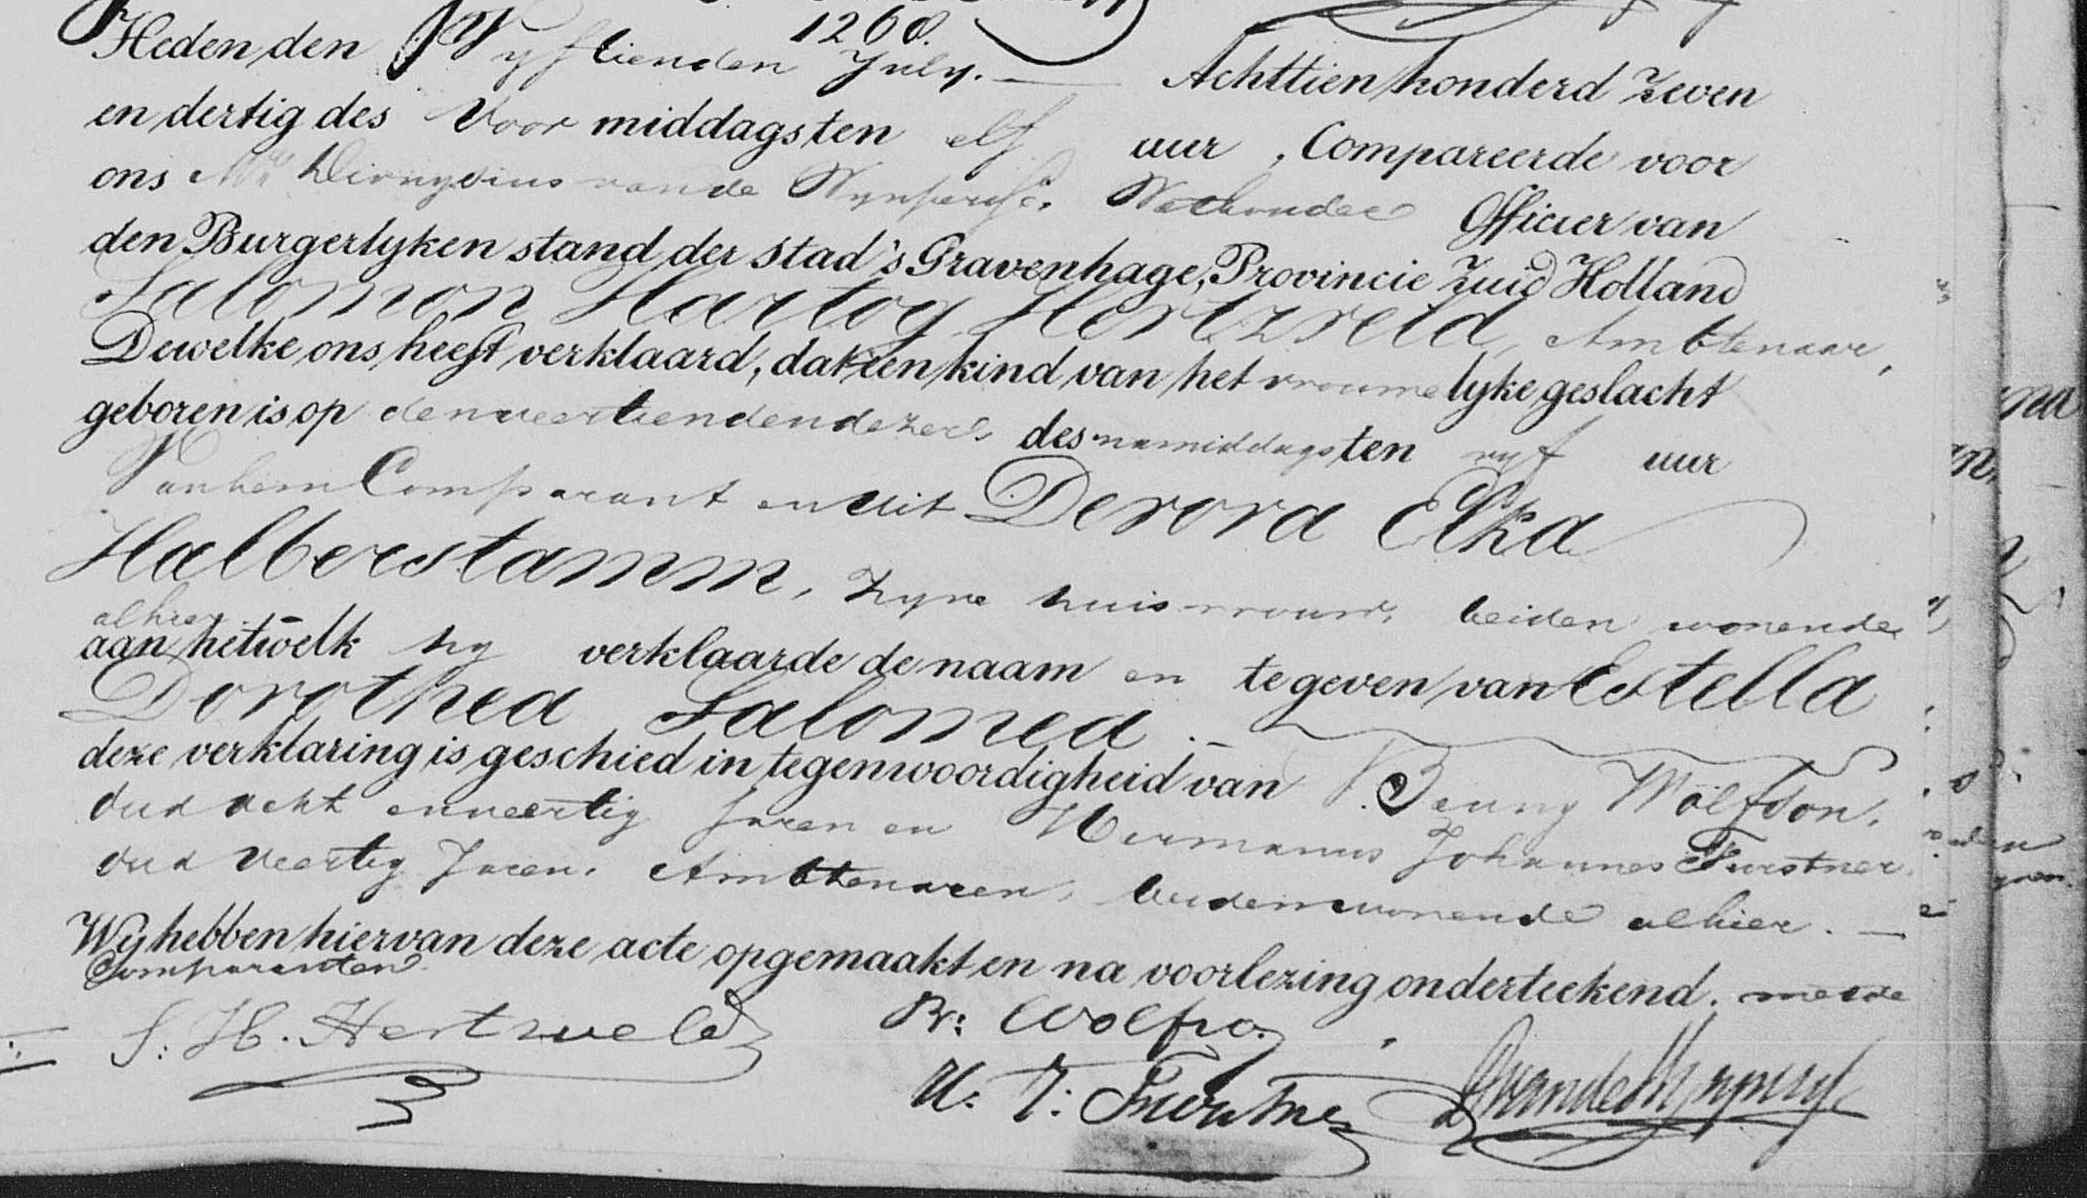 1268.
Heden den Vyftienden July. — Achttien honderd zeven
en dertig des Voor middags ten elf uur, Compareerde voor
ons Mr Dionysius van de Wynpersse, Wethouder Officier van
den Burgerlyken stand der stad 's Gravenhage, Provincie Zuid Holland
Salomon Hartog Hertzveld, Ambtenaar,
Dewelke ons heeft verklaard, dat een kind van het vrouwelyke geslacht
geboren is op den veertienden dezer, des namiddags ten vyf uur
Van hem Comparant en uit Derora Elka
Halberstamm, Zyne huisvrouw, beiden wonende
alhier
aan hetwelk hy verklaarde de naam en te geven van Estella
Dorothea Salomea. —
deze verklaring is geschied in tegenwoordigheid van Benny Wolfson,
oud acht en veertig Jaren en Hermanus Johannes Furstner
oud veertig Jaren, Ambtenaren, beiden wonende alhier. —
Wy hebben hiervan deze acte opgemaakt en na voorlezing onderteekend. met de
Comparanten
S: H. Hertzveld B: Wolfso
H. J: Furstner DvandeWynpersse